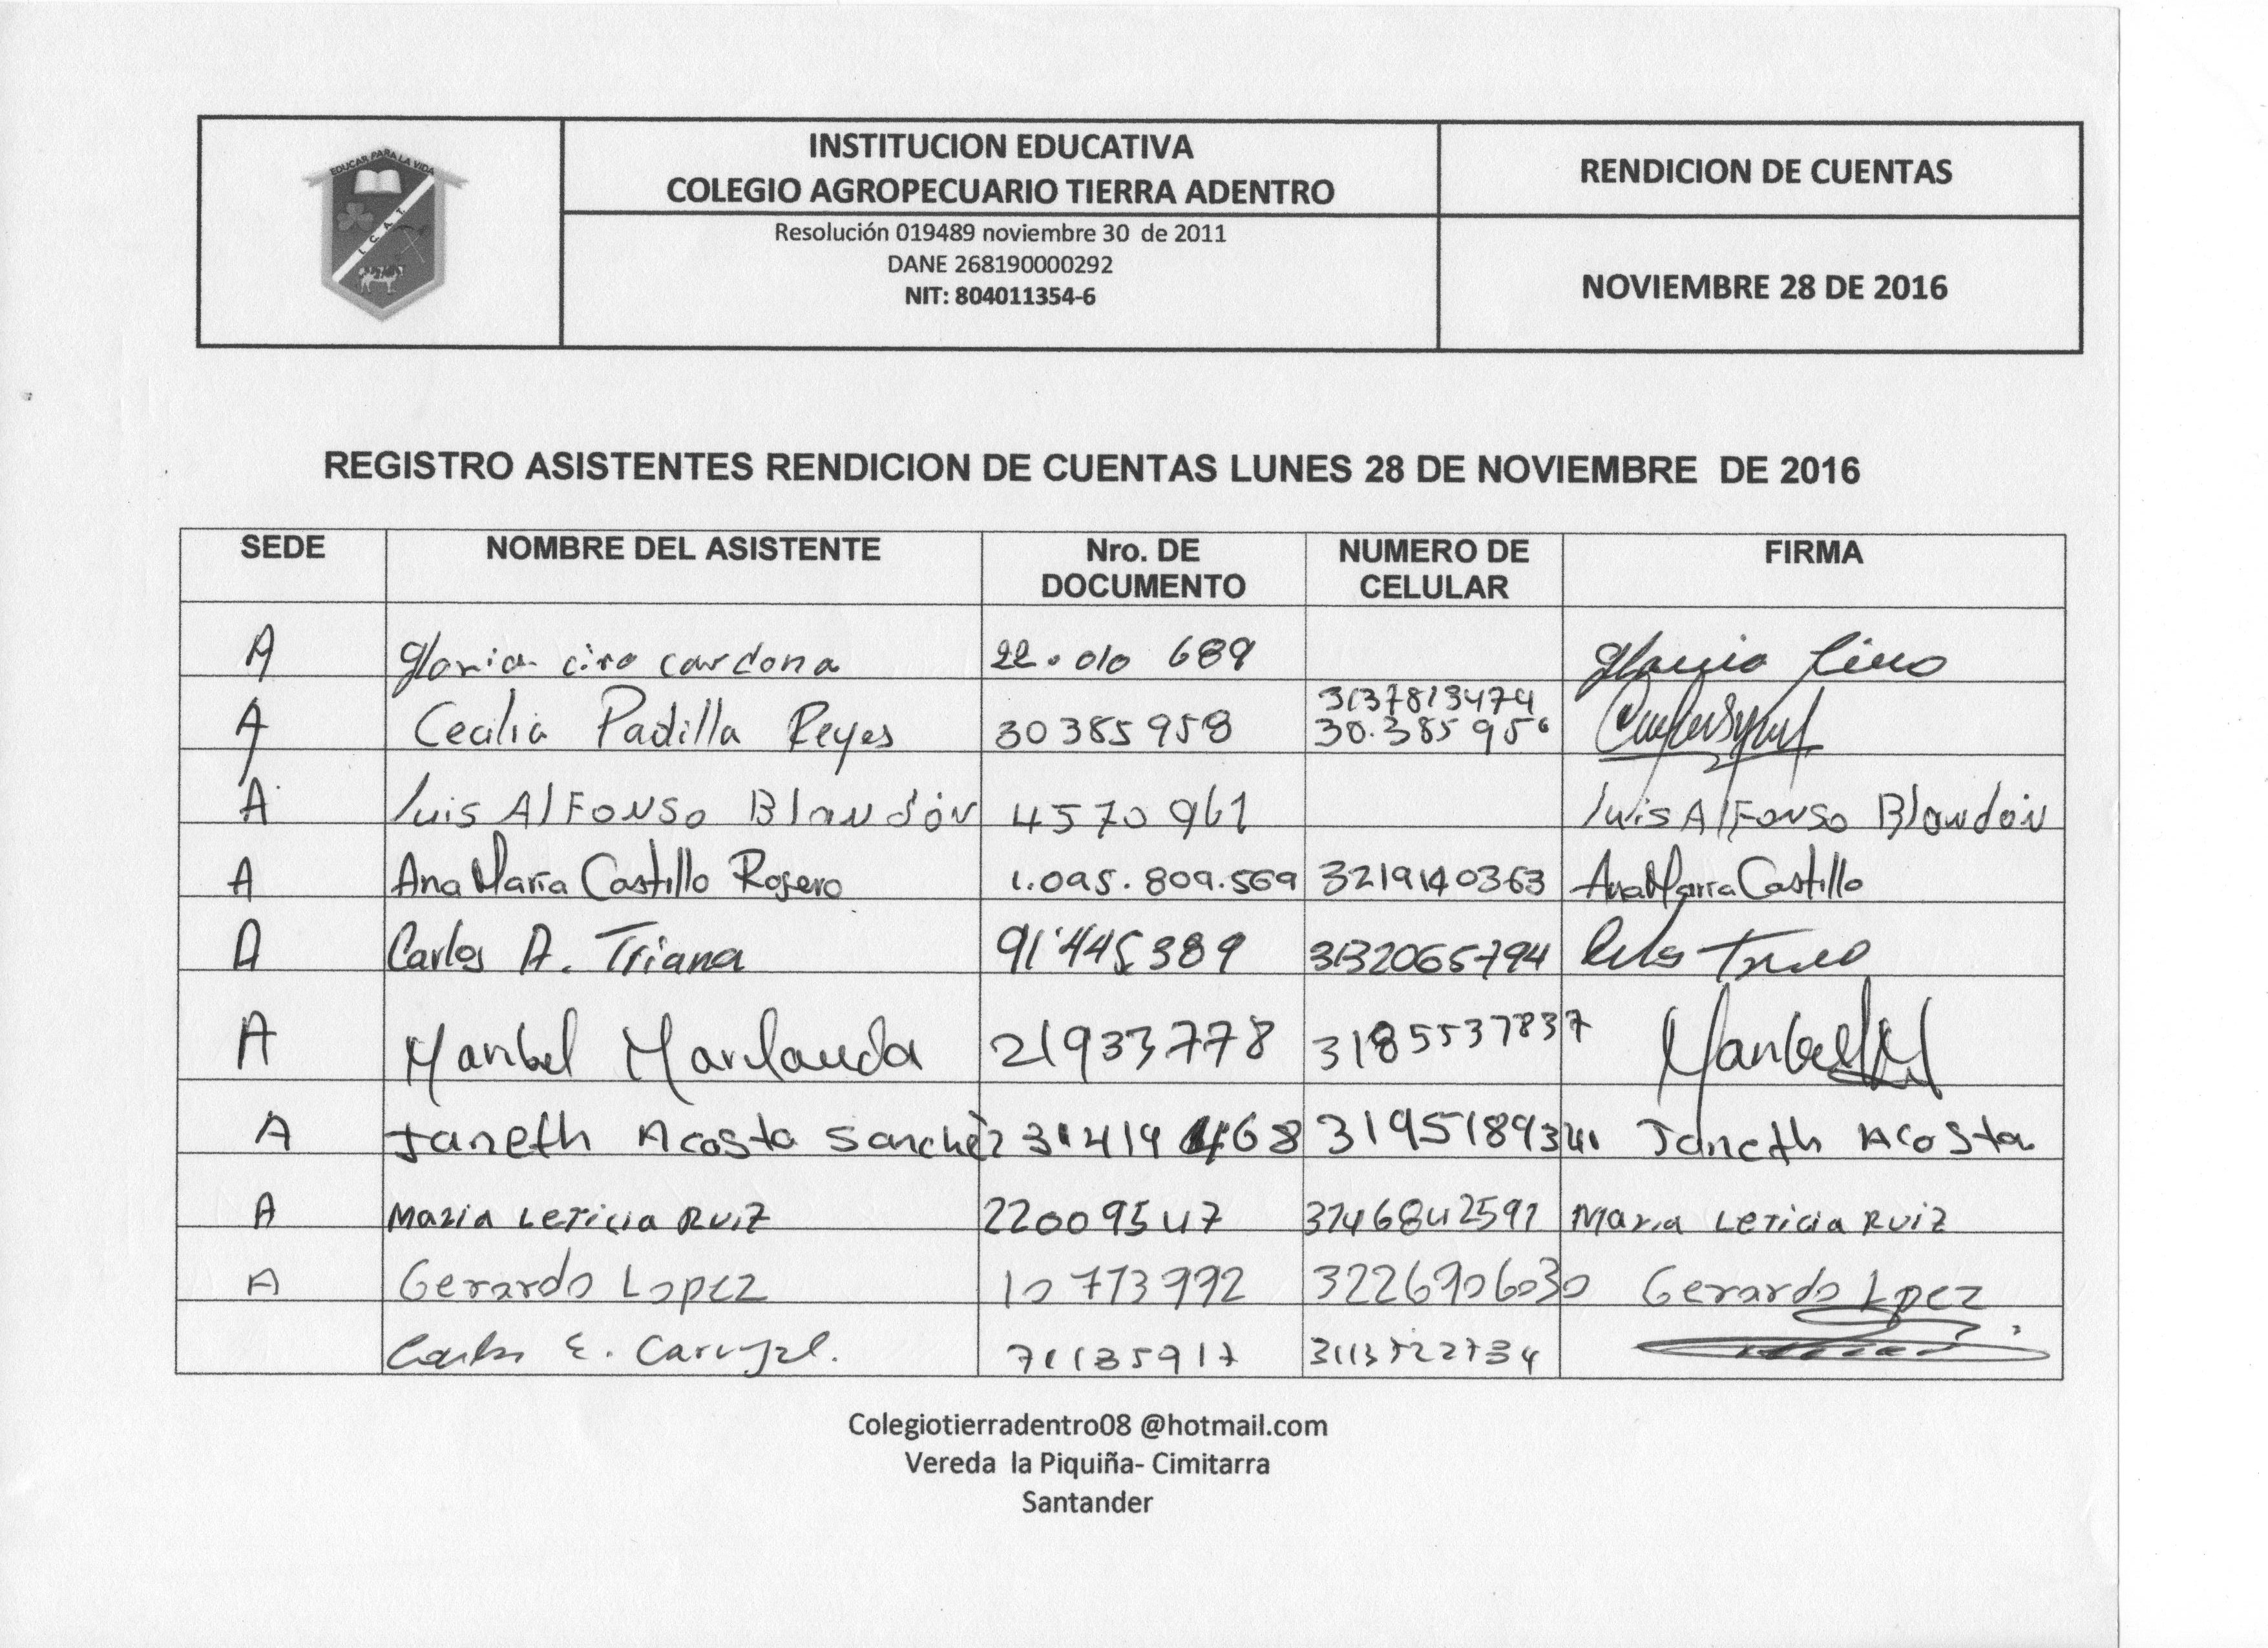 EDUCAR PARA LA VIDA
I. C. A. T.
INSTITUCION EDUCATIVA
COLEGIO AGROPECUARIO TIERRA ADENTRO
RENDICION DE CUENTAS
Resolución 019489 noviembre 30 de 2011
DANE 268190000292
NIT: 804011354-6
NOVIEMBRE 28 DE 2016
REGISTRO ASISTENTES RENDICION DE CUENTAS LUNES 28 DE NOVIEMBRE DE 2016
SEDE NOMBRE DEL ASISTENTE Nro. DE DOCUMENTO NUMERO DE CELULAR FIRMA
A Gloria ciro cardona 22.010 689 Gloria Ciro
A Cecilia Padilla Reyes 30385958 3137813474 30.385 95
A Luis Alfonso Blandón 4570961 Luis Alfonso Blandón
A Ana Maria Castillo Rosero 1.095.809.569 3219140363 Ana Maria Castillo
A Carlos A. Triana 91'445389 3132065794
A Maribel Marlanda 21933778 3185537837 Maribel M
A Janeth Acosta Sanchez 31419468 Janeth Acosta
A Maria Leticia Ruiz 22009547 3146842591 Maria Leticia Ruiz
A Gerardo Lopez 10773992 3226906030 Gerardo Lpez
Carlos E. Carvajal. 71135917
Colegiotierradentro08 @hotmail.com
Vereda la Piquiña- Cimitarra
Santander